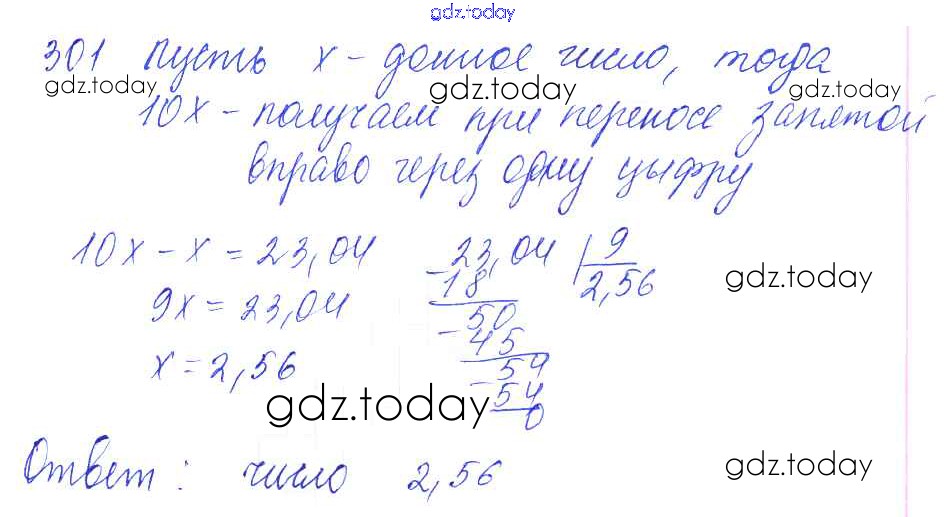 gdz.today
301 Пусть x - данное число, тогда
gdz.today gdz.today gdz.today
10x - получаем при переносе запятой
вправо через одну цыфру
10x - x = 23,04
9x = 23,04
x = 2,56
23,04 | 9
- 18 2,56
50
- 45
54
- 54
0
gdz.today
gdz.today
Ответ: число 2,56
gdz.today